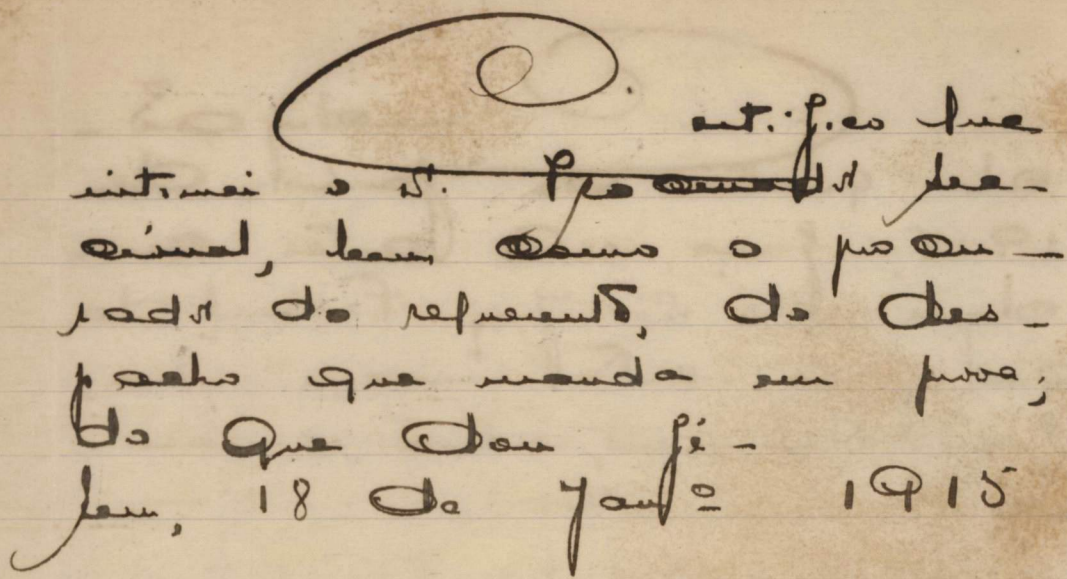 Certifico que
intimei o Dr. Procurador Sec-
cional, bem como o procu-
rador do requerente, do des-
pacho que manda em prova;
do que dou fé -
18 de Janrº 1915